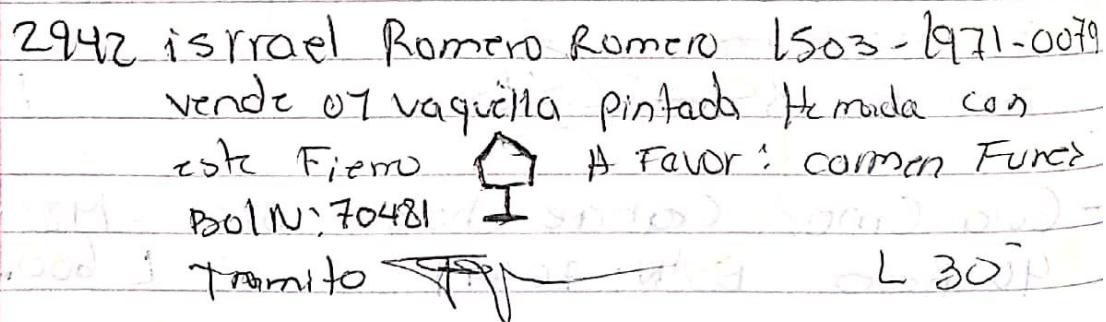 2942 isrrael Romero Romero 1503-1971-0079
vende 01 vaquilla pintada Herrada con
este Fierro A Favor: carmen Funez
Bol N: 70481
Tramito L 30